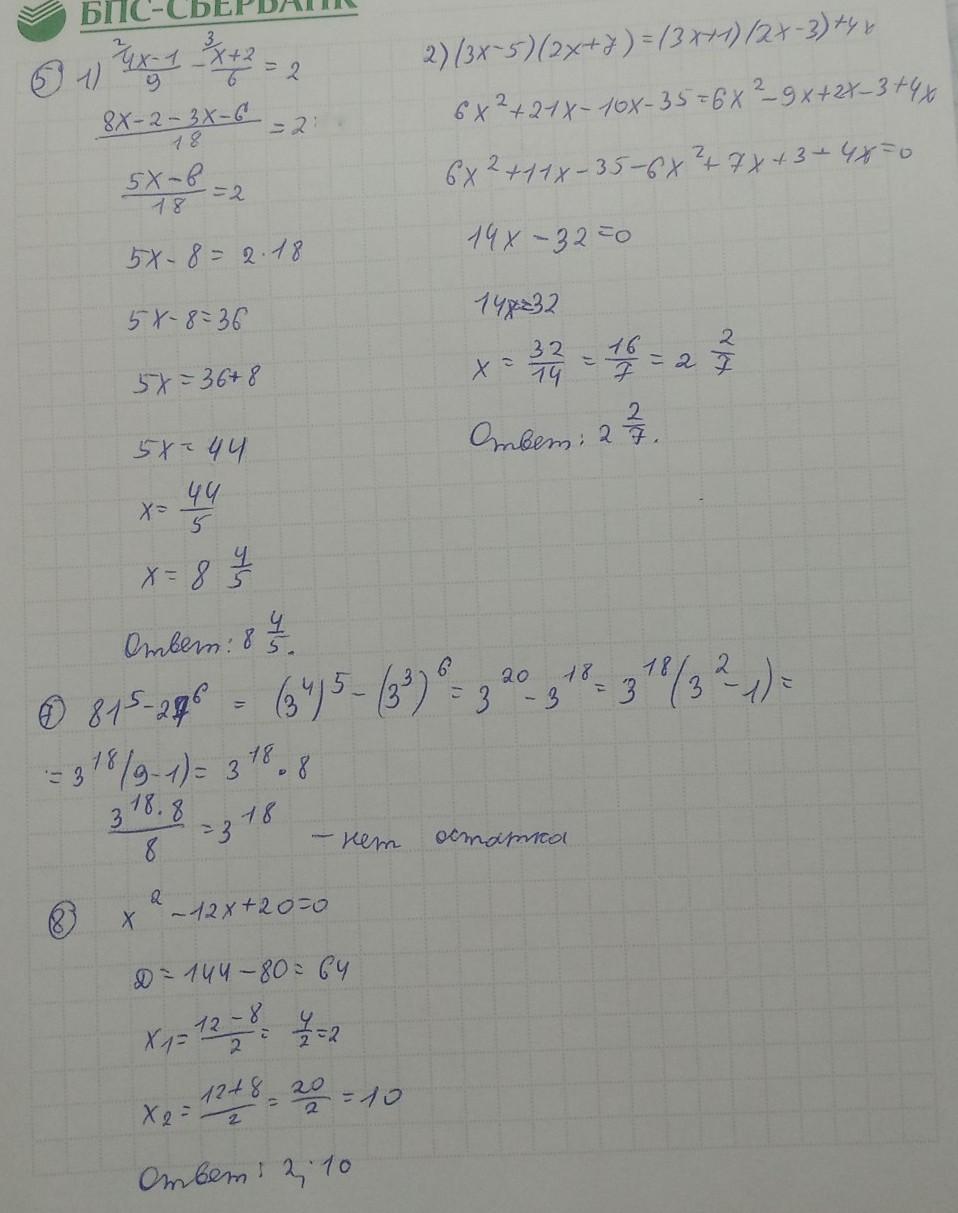 БПС-СБЕРБАНК
5) 1) (4x-1)/9 ² - (x+2)/6 ³ = 2
(8x-2-3x-6)/18 = 2
(5x-8)/18 = 2
5x-8 = 2·18
5x-8=36
5x=36+8
5x=44
x= 44/5
x= 8 4/5
Ответ: 8 4/5.
2) (3x-5)(2x+7)=(3x+1)(2x-3)+4x
6x²+21x-10x-35=6x²-9x+2x-3+4x
6x²+11x-35-6x²+7x+3-4x=0
14x-32=0
14x=32
x = 32/14 = 16/7 = 2 2/7
Ответ: 2 2/7.
7) 81⁵-27⁶ = (3⁴)⁵-(3³)⁶=3²⁰-3¹⁸=3¹⁸(3²-1)=
=3¹⁸(9-1)=3¹⁸·8
(3¹⁸·8)/8 =3¹⁸ - нет остатка
8) x²-12x+20=0
D=144-80=64
x₁= (12-8)/2 = 4/2 =2
x₂= (12+8)/2 = 20/2 =10
Ответ: 2; 10